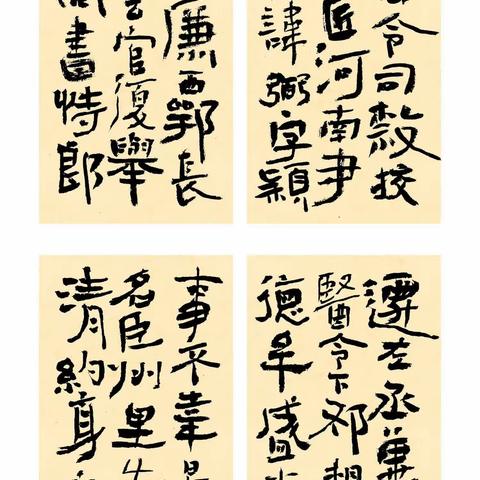 令司敖校
匠河南尹
諱弼字穎
廉西鄂長
官復舉
書侍郎
遷左丞冀
醫令下邳相
德牟盛
事不幸
名臣州里
清約身